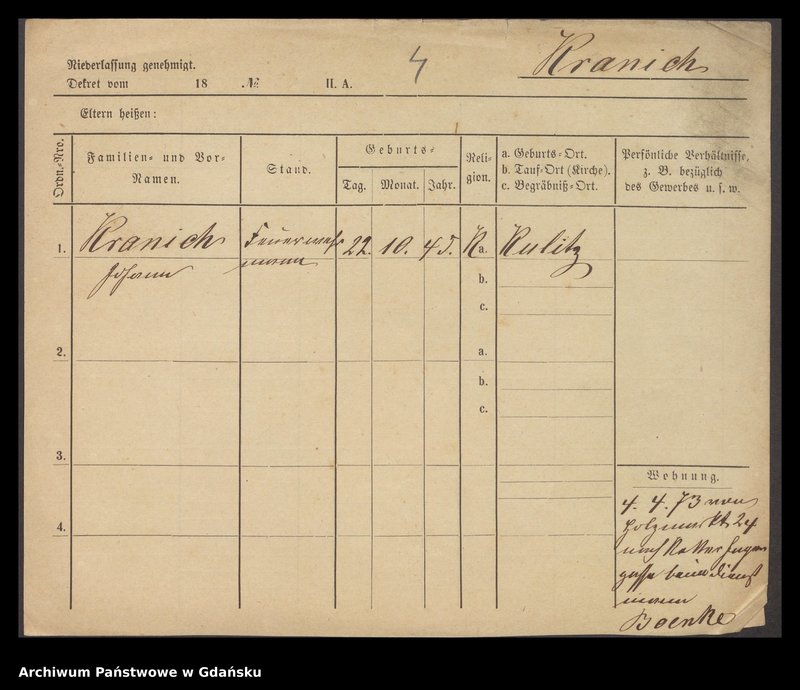 Niederlassung genehmigt.
Dekret vom 18 № II. A.
4
Kranich
Eltern heißen:
Ordn.-Nro.
Familien- und Vor-
Namen.
Stand.
Geburts-
Tag. Monat. Jahr.
Reli-
gion.
a. Geburts-Ort.
b. Tauf-Ort (Kirche).
c. Begräbniß-Ort.
Persönliche Verhältnisse,
z. B. bezüglich
des Gewerbes u. s. w.
1. Kranich Feuerwehr 22. 10. 45. K a. Kulitz
Johann mann
b.
c.
2. a.
b.
c.
3.
4.
Wohnung.
4. 4. 73 von
Holzmarkt 24
nach Ketterhager
gasse beim Dienst
mann
Boenke
Archiwum Państwowe w Gdańsku